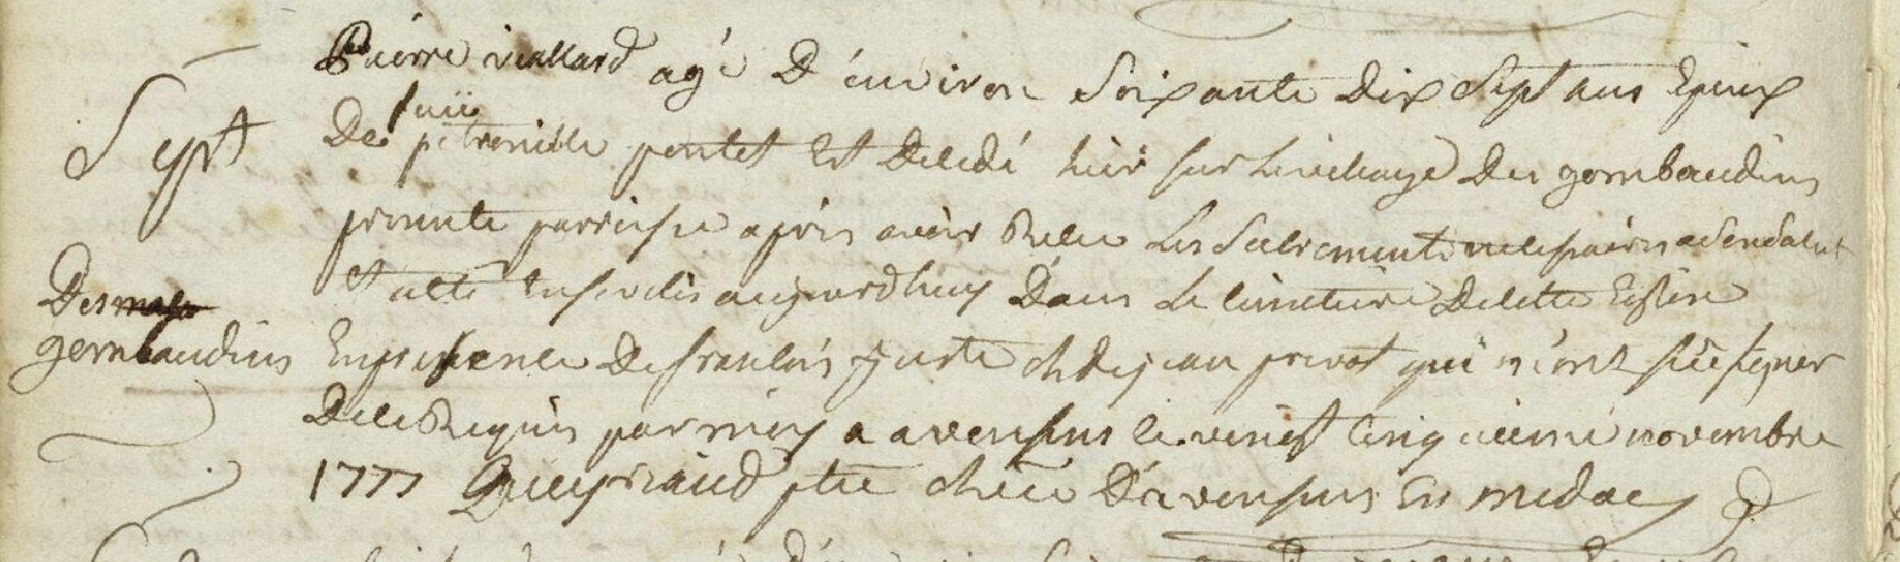 Pierre viallard agé D'environ soixante Dix Sept ans Epoux
Sept
De fuïi petronille pontet Est Decedé hier sur le village Des gombaudins
presente parroisse après avoir Relu Les Sacrements necessaires a son salut
Et a eté Ensevelis aujourdhuy Dans Le cimetiere De cette Eglise
Des
gombaudins
En presence De francois juste et de jean privat qui n'ont scu signer
De ce Requis par moy a avensans le vingt cinquieme novembre
1777 ptre D'avensans En medoc